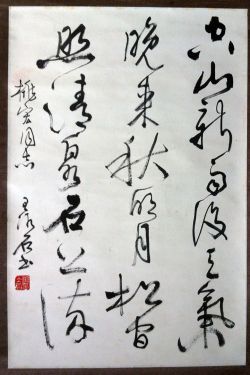 空山新雨後天氣
晚来秋明月松間
照清泉石上流
同志